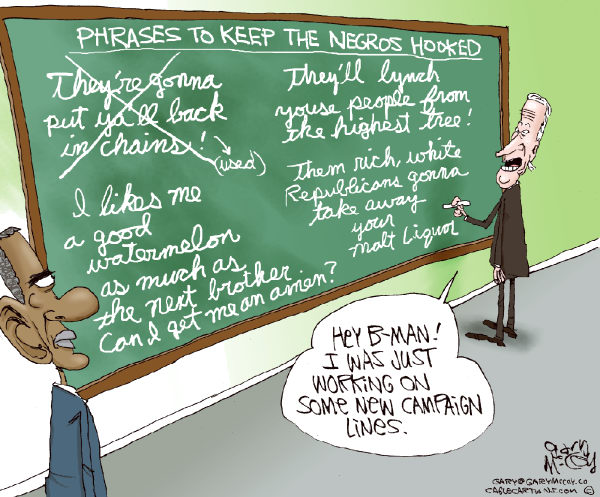 PHRASES TO KEEP THE NEGROS HOOKED
They're gonna
put ya'll back
in chains!
(used)
I likes me
a good
watermelon
as much as
the next brother.
Can I get me an amen?
They'll lynch
youse people from
the highest tree!
Them rich, white
Republicans gonna
take away
your
Malt Liquor
HEY B-MAN!
I WAS JUST
WORKING ON
SOME NEW CAMPAIGN
LINES.
GARY
McCOY
GARY@GARYMCCOY.CO
CAGLECARTOONS.COM ©